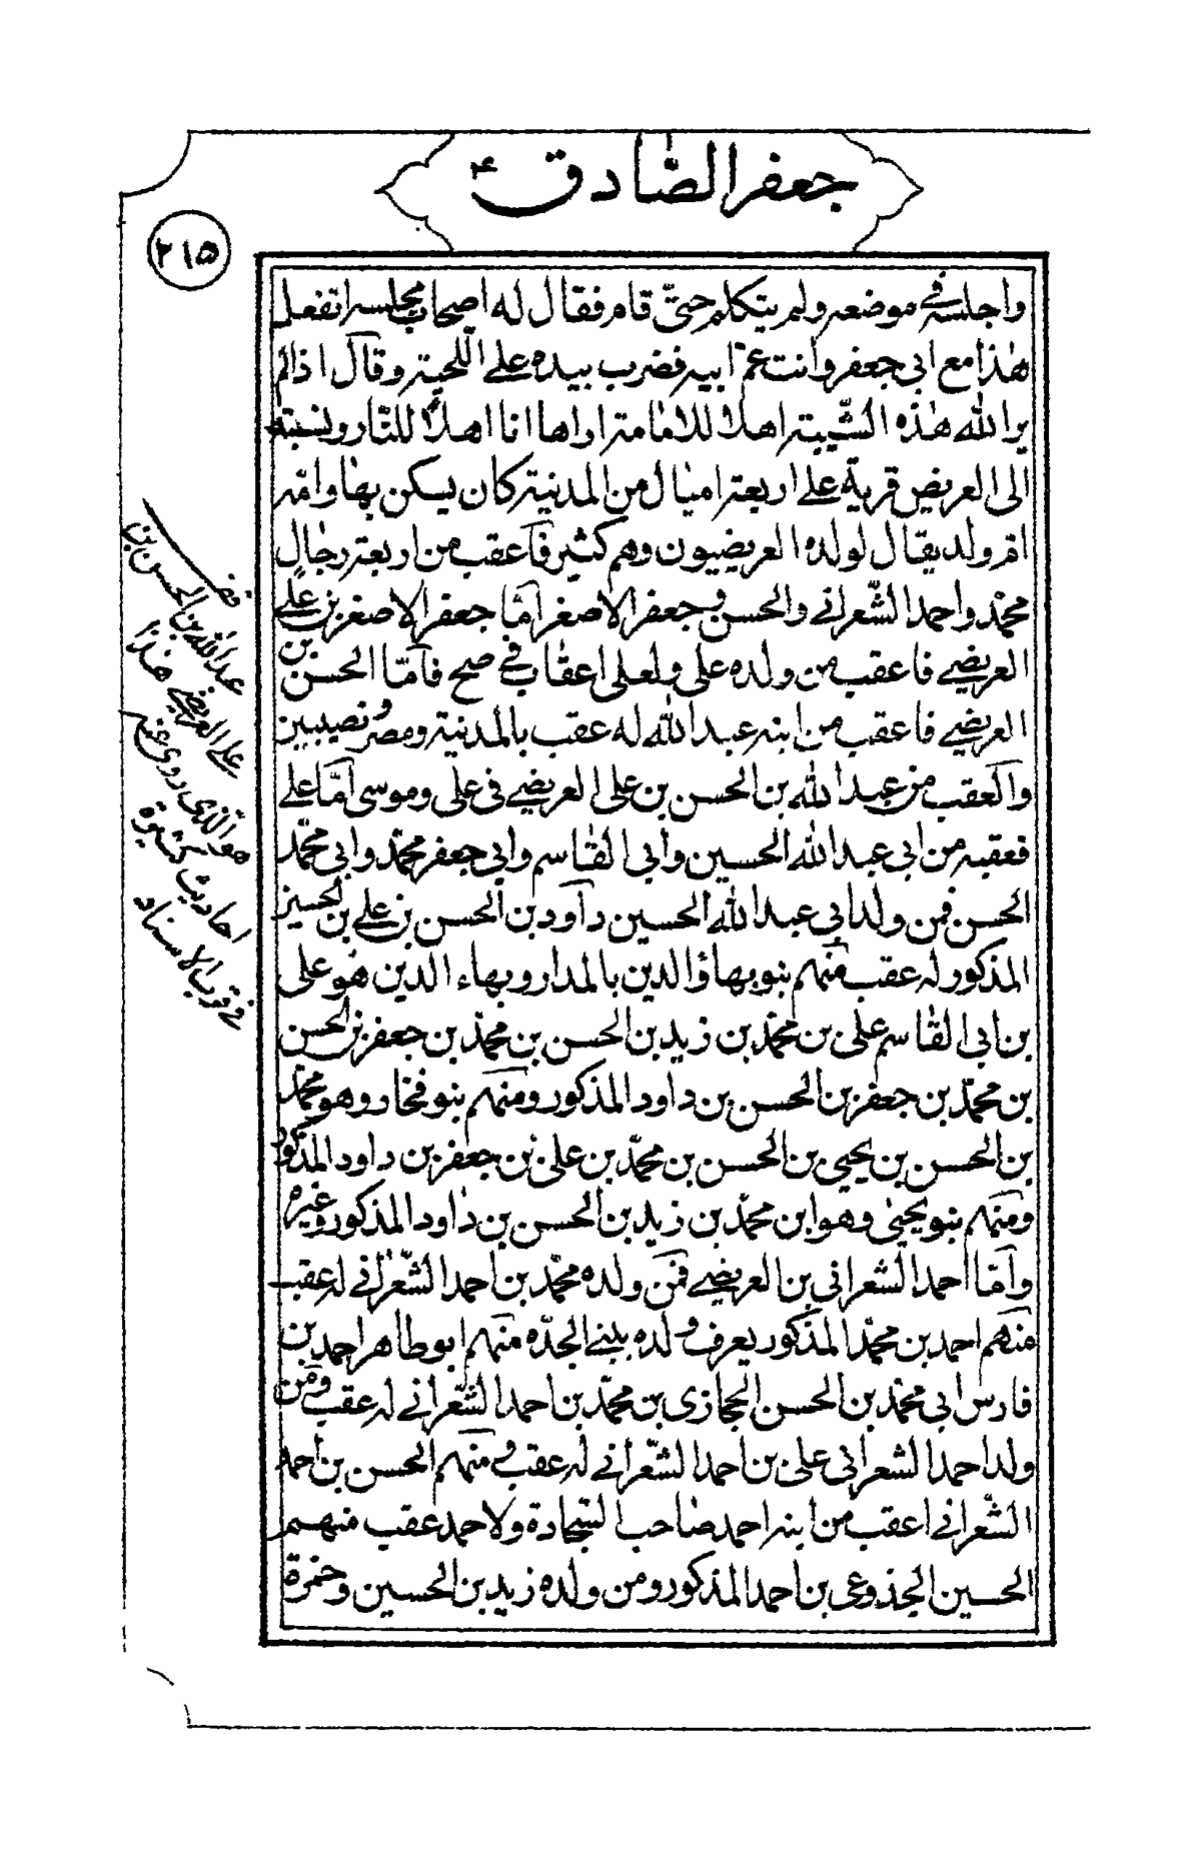 جعفر الصّادق ع
٢١٥
واجلسه في موضعه ولم يتكلم حتّى قام فقال له اصحاب مجلسه اتفعل
هٰذا مع ابي جعفر وانت عمّ ابيه فضرب بيده على اللّحية وقال اذا لم
ير الله هٰذه الشّيبة اهلا للامامة اراها انا اهلاً للنّار ونسبة
الى العريض قرية على اربعة اميال من المدينة كان يسكن بها وامّه
امّ ولد يقال لولده العريضيون وهم كثير فاعقب من اربعة رجال
محمّد واحمد الشّعراني والحسن وجعفر الاصغر امّا جعفر الاصغر بن علي
العريضي فاعقب من ولده علي ولعلي اعقاب في صح فامّا الحسن بن
العريضي فاعقب من ابنه عبد الله له عقب بالمدينة ومصر ونصيبين
والعقب من عبد الله بن الحسن بن علي العريضي في علي وموسى امّا علي
فعقبه من ابي عبد الله الحسين وابي القاسم وابي جعفر محمّد وابي محمّد
الحسن فمن ولد ابي عبد الله الحسين داود بن الحسن بن علي بن الحسين
المذكور له عقب منهم بنو بهاؤ الدين بالمدار وبهاء الدين هو علي
بن ابي القاسم علي بن محمّد بن زيد بن الحسن بن محمّد بن جعفر بن الحسن
بن محمّد بن جعفر بن الحسن بن داود المذكور ومنهم بنو فخار وهو محمّد
بن الحسن بن يحيى بن الحسن بن محمّد بن علي بن جعفر بن داود المذكور
ومنهم بنو يحيى وهو ابن محمّد بن زيد بن الحسن بن داود المذكور وغيره
وامّا احمد الشعراني بن العريضي فمن ولده محمّد بن احمد الشّعراني له عقب
منهم احمد بن محمّد المذكور يعرف ولده ببني الجدّه منهم ابو طاهر احمد بن
فارس ابي محمّد بن الحسن الحجازي بن محمّد بن احمد الشّعراني له عقب ومن
ولد احمد الشعراني علي بن احمد الشّعراني له عقب ومنهم الحسن بن احمد
الشّعراني اعقب من ابنه احمد صاحب السّجادة ولاحمد عقب منهم
الحسين الجذوعي بن احمد المذكور ومن ولده زيد بن الحسين وحمزة
عبد الله بن الحسن بن
علي العريضي هذا
هو الذي روى عنه
احاديث كثيرة
في قرب الاسناد